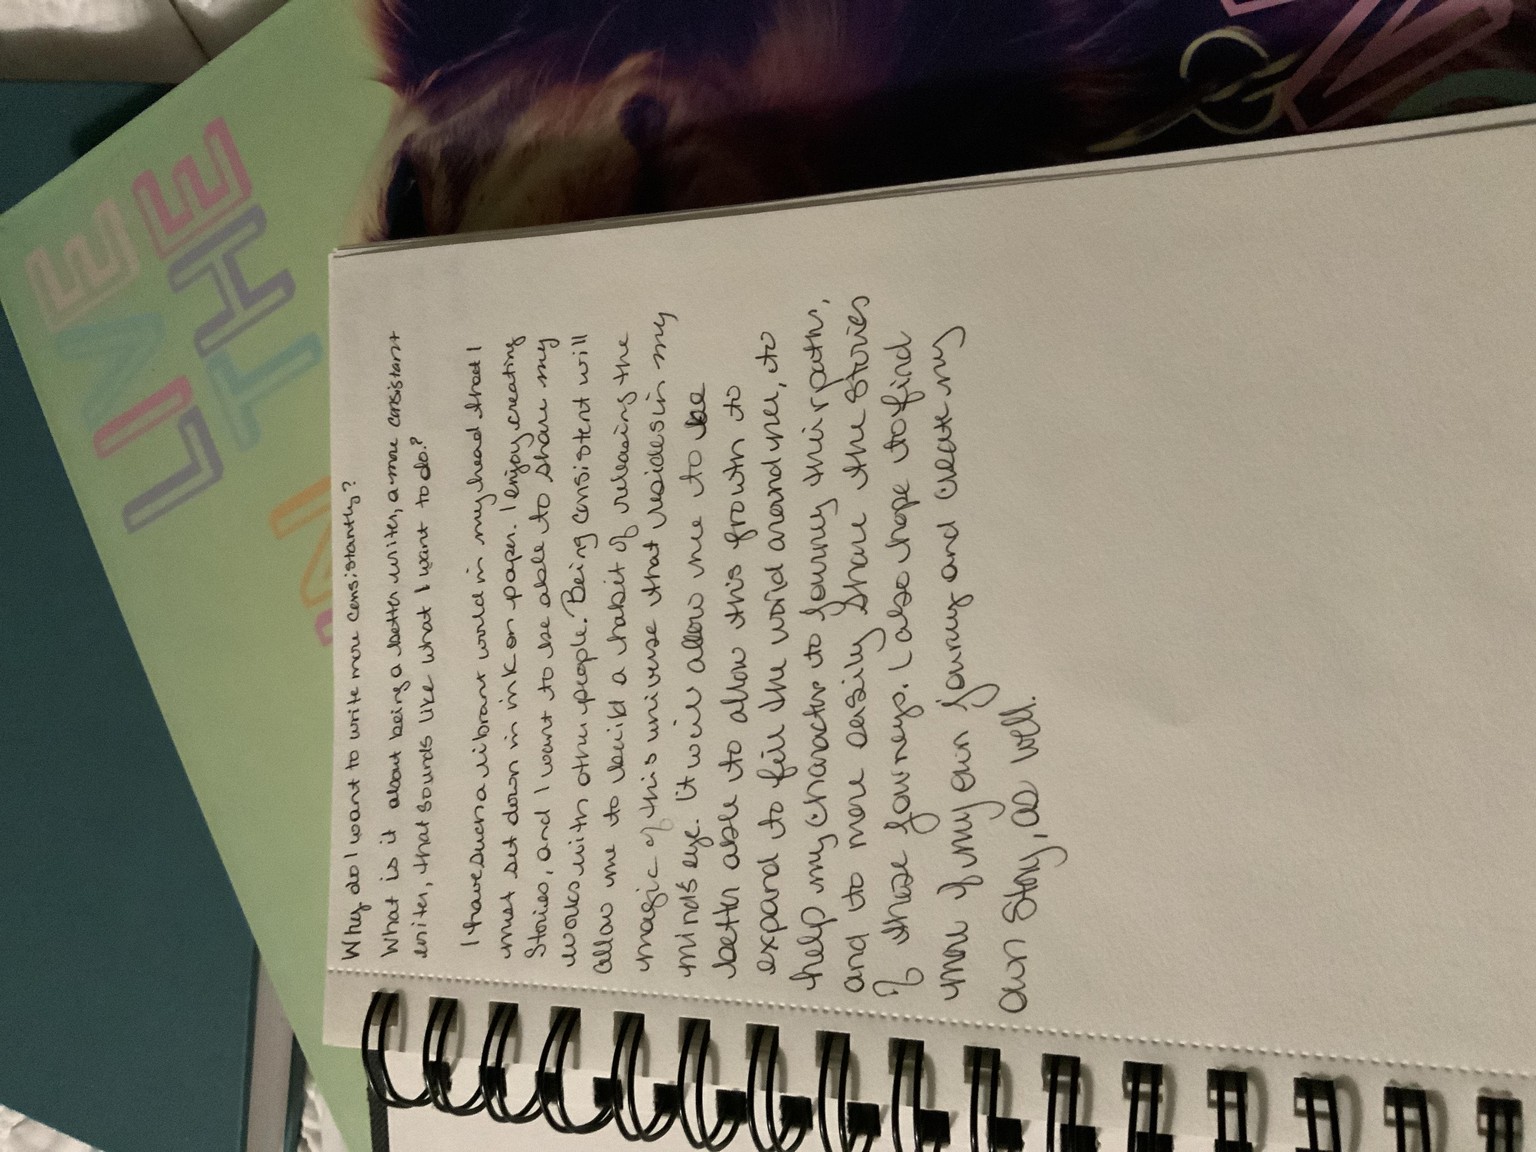 LIVE
THE
IN
Why do I want to write more consistantly?
What is it about being a better writer, a more consistant
writer, that sounds like what I want to do?
I have such a vibrant world in my head that I
must set down in ink on paper. I enjoy creating
Stories, and I want to be able to share my
works with other people. Being consistent will
allow me to build a habit of releasing the
magic of this universe that resides in my
minds eye. It will allow me to be
better able to allow this growth to
expand to fill the world around me, to
help my characters to journey their paths,
and to more easily share the stories
of these journeys. I also hope to find
more of my own journey and create my
own Story, as well.